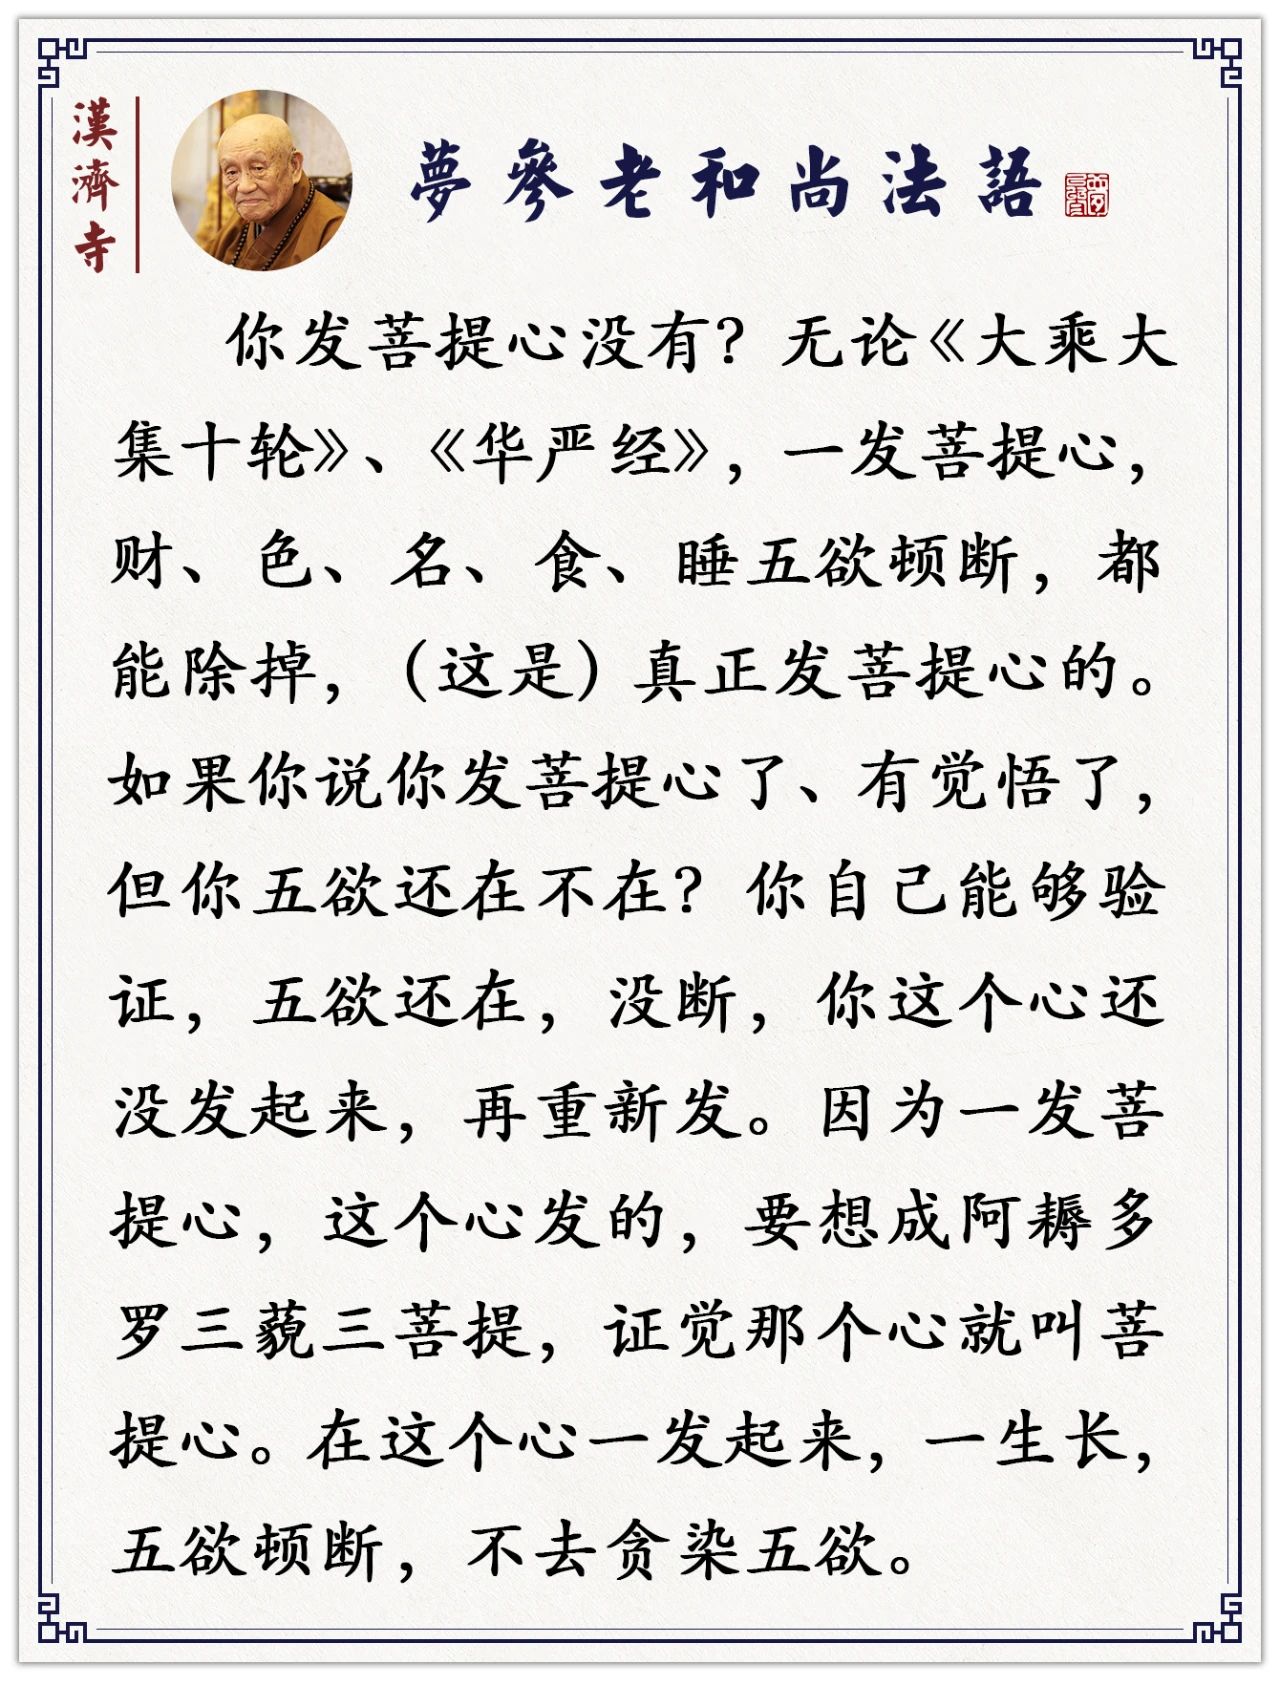 漢濟寺
夢參老和尚法語
你发菩提心没有？无论《大乘大
集十轮》、《华严经》，一发菩提心，
财、色、名、食、睡五欲顿断，都
能除掉，（这是）真正发菩提心的。
如果你说你发菩提心了、有觉悟了，
但你五欲还在不在？你自己能够验
证，五欲还在，没断，你这个心还
没发起来，再重新发。因为一发菩
提心，这个心发的，要想成阿耨多
罗三藐三菩提，证觉那个心就叫菩
提心。在这个心一发起来，一生长，
五欲顿断，不去贪染五欲。